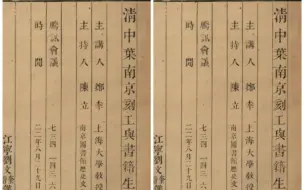 清中葉南京刻工與書籍生
主講人 鄭幸 上海大學教授
主持人 陳立 南京圖書館歷史文
騰訊會議 七三四 一四三
時間 二二年八月二十九日
江寧劉文奎
清中葉南京刻工與書籍生
主講人 鄭幸 上海大學教授
主持人 陳立 南京圖書館歷史文
騰訊會議 七三四 一四三
時間 二二年八月二十九日
江寧劉文奎